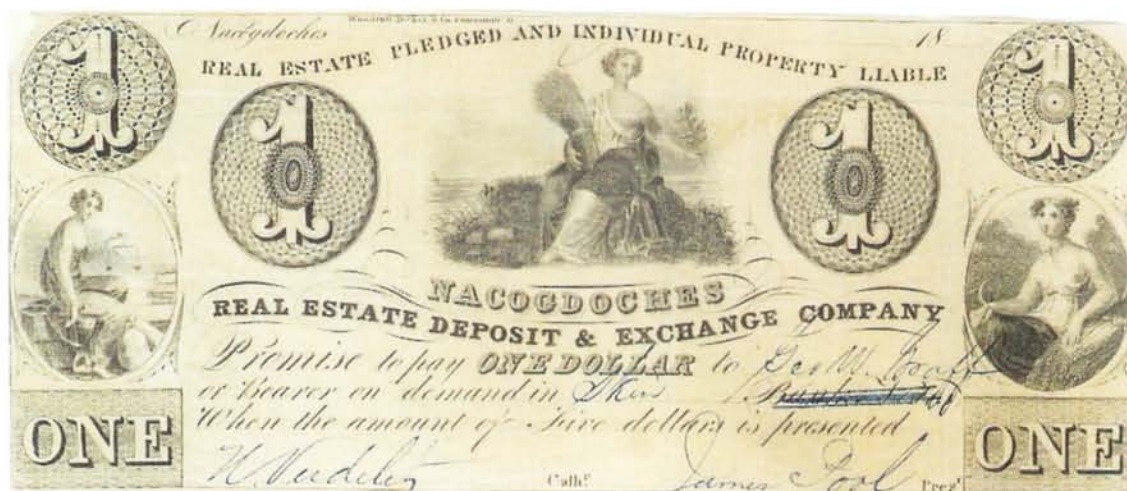 Nacogdoches 18
REAL ESTATE PLEDGED AND INDIVIDUAL PROPERTY LIABLE
1 1 1 1
NACOGDOCHES
REAL ESTATE DEPOSIT & EXCHANGE COMPANY
Promise to pay ONE DOLLAR to Geo W.
or Bearer on demand in
When the amount of Five dollars is presented
ONE ONE
Cashr. James Pres't